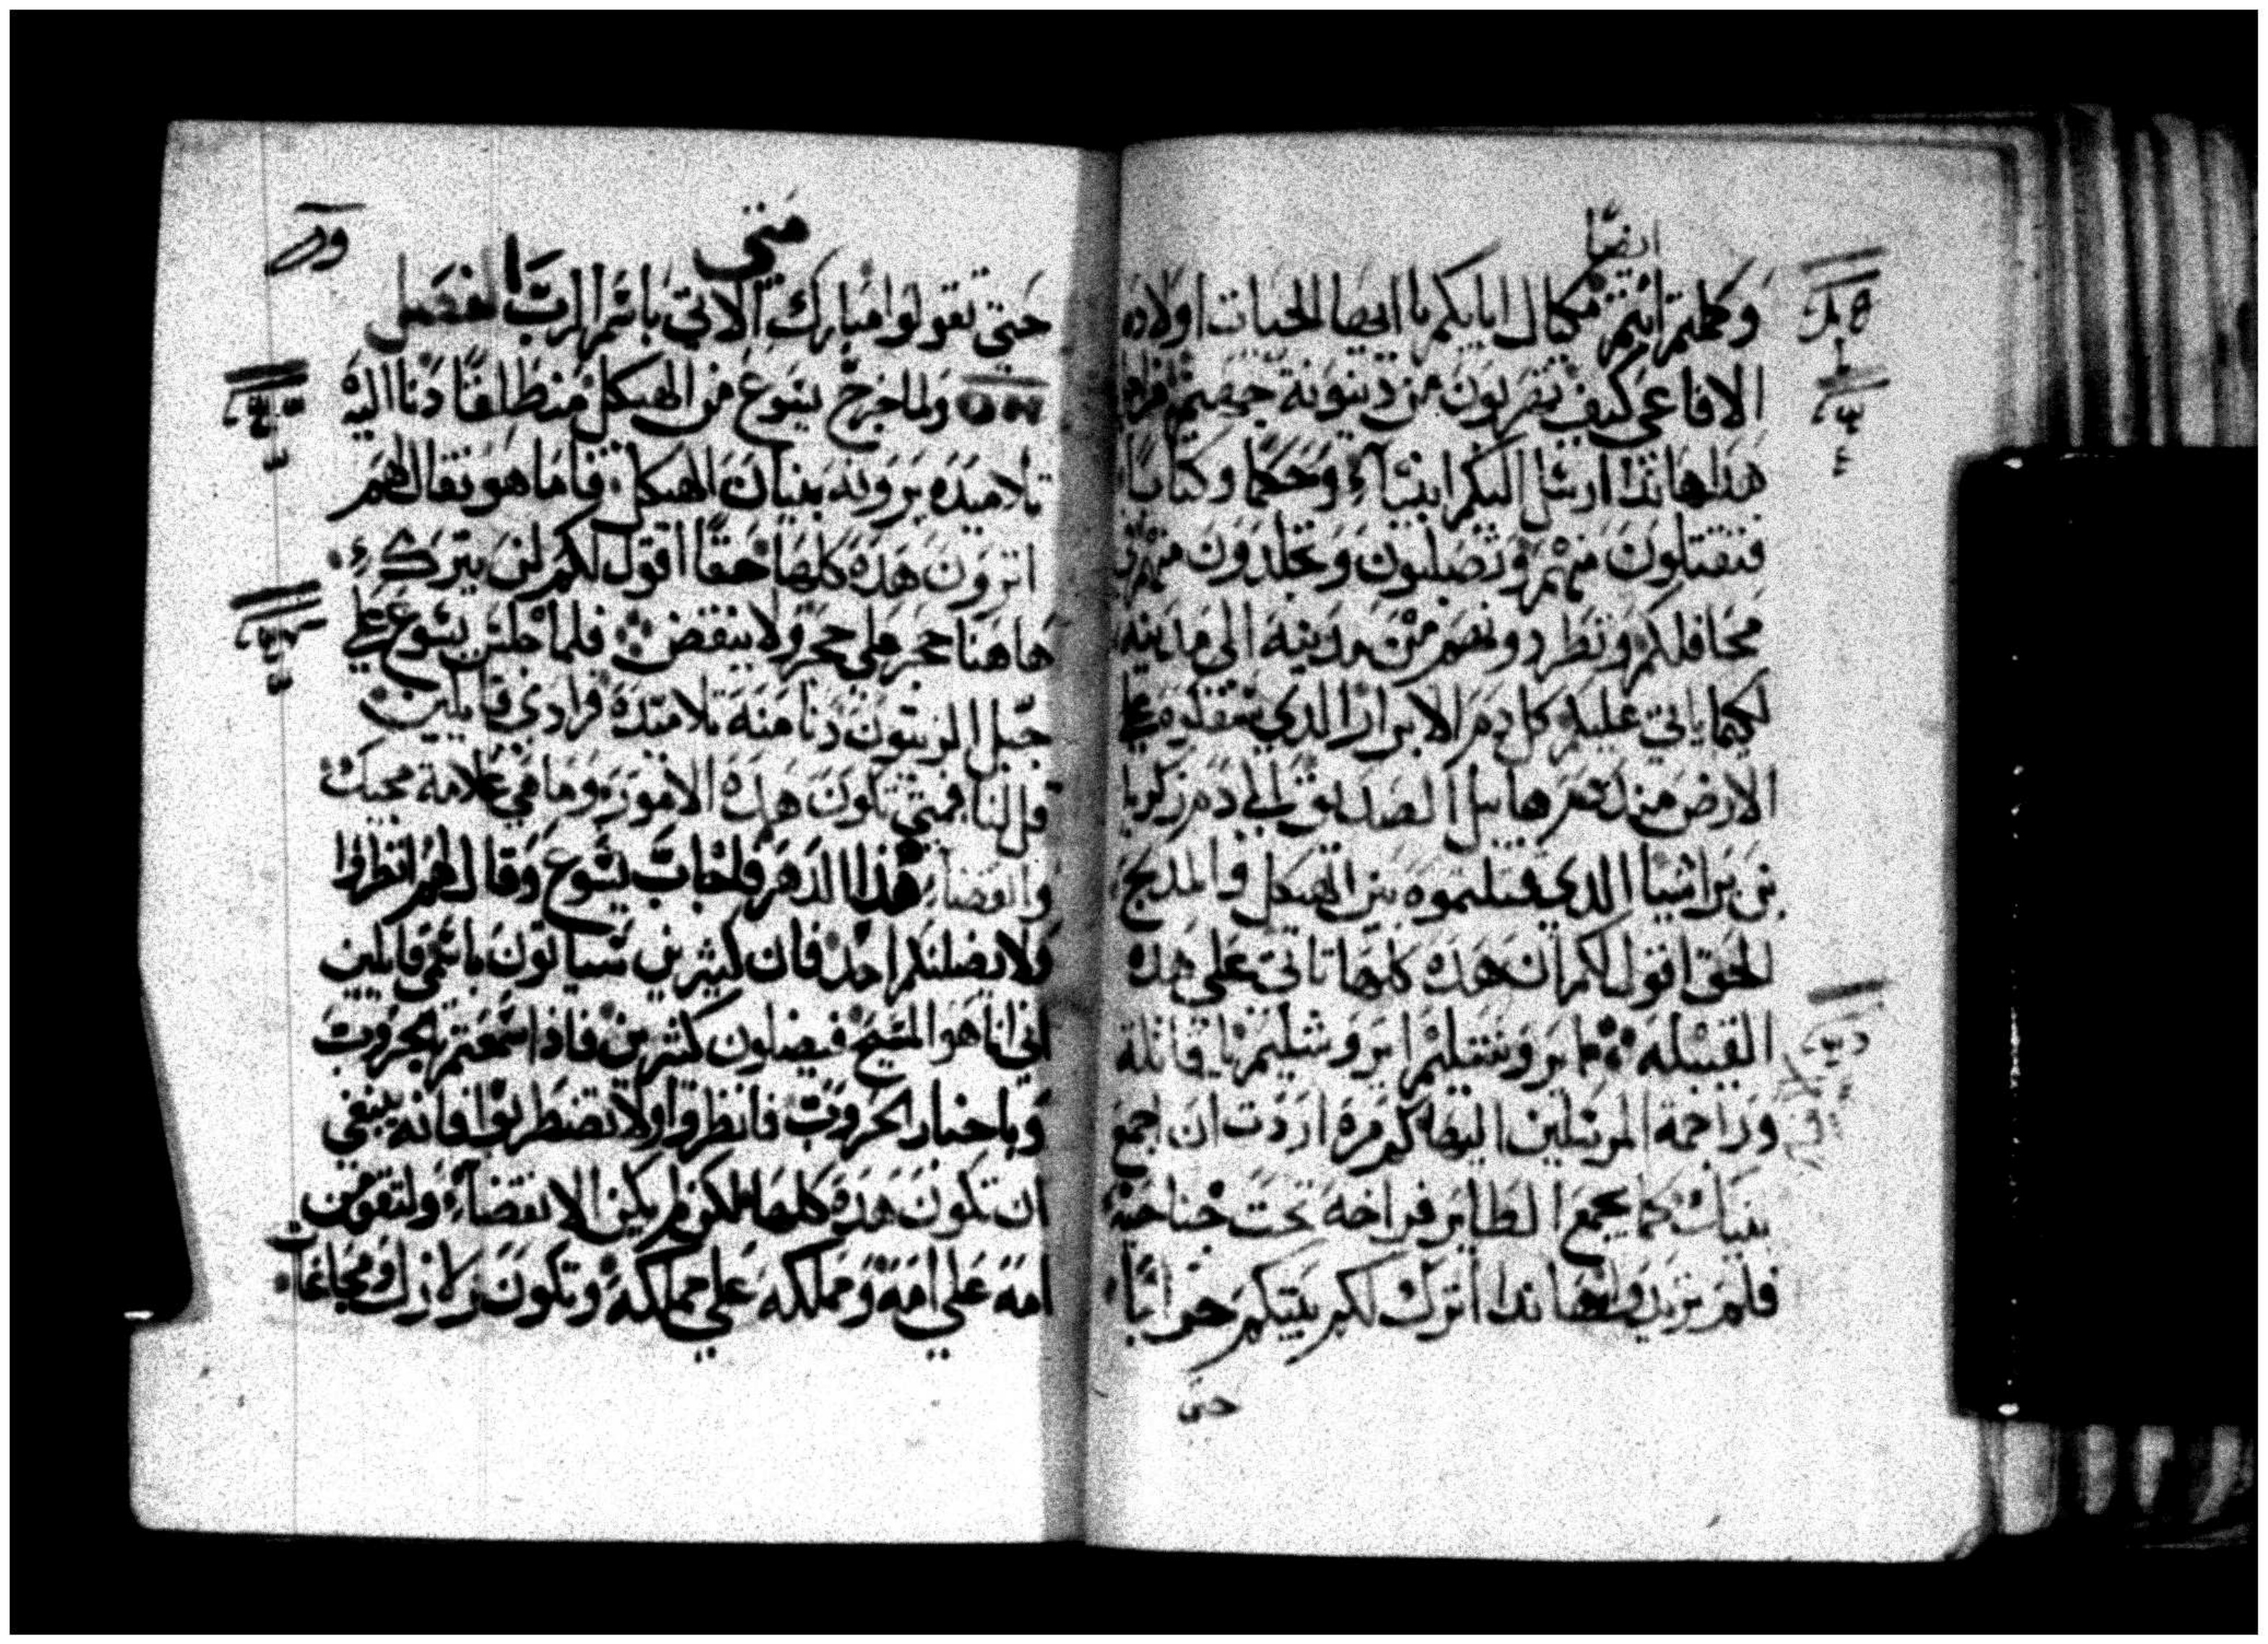 ايضًا
وكملتم انتم مكيال ابايكم يا ايها الحيات اولاد
الافاعي كيف تهربون من دينونة جهنم
هذا هانذا ارسل اليكم انبيآء وحكما وكتابا
فتقتلون منهم وتصلبون وتجلدون منهم
محافلكم وتطردونهم من مدينة الي مدينه
لكيما ياتي عليكم كل دم الابرار الذي
الارض منذ دم هابيل الصديق الي دم زكريا
بن براشيا الذي قتلتموه بين الهيكل والمذبح
الحق اقول لكم ان هذه كلها تاتي علي هذه
القبيله يا يروشليم يا يروشليم يا قاتلة
وراجمة المرسلين اليها كم مرة اردت ان اجمع
بنيك كما يجمع الطاير فراخه تحت جناحيه
فلم تريدوا هانذا اترك لكم بيتكم خرابًا
حتي
متي
حتي تقولوا مبارك الاتي باسم الرب الفصل
ولما خرج يسوع من الهيكل منطلقًا دنا اليه
تلاميذه يرونه بنيان الهيكل فاما هو فقال لهم
اترون هذه كلها حقًا اقول لكم لن يترك
هاهنا حجر علي حجر ولا ينقض فلما جلس يسوع علي
جبل الزيتون دنا منه تلاميذه فرادي قايلين
قل لنا فمتي تكون هذه الامور وما هي علامة مجيك
وانقضا هذا الدهر فاجاب يسوع وقال لهم انظروا
ولا يضلنكم احد فان كثيرين سياتون باسمي قايلين
اني انا هو المسيح فيضلون كثيرين فاذا سمعتم بحروب
وباخبار الحروب فانظروا ولا تضطربوا فانه ينبغي
ان تكون هذه كلها لكن لم يكن الانقضآء ولتقومن
امة علي امة ومملكه علي مملكه وتكون زلازل ومجاعات